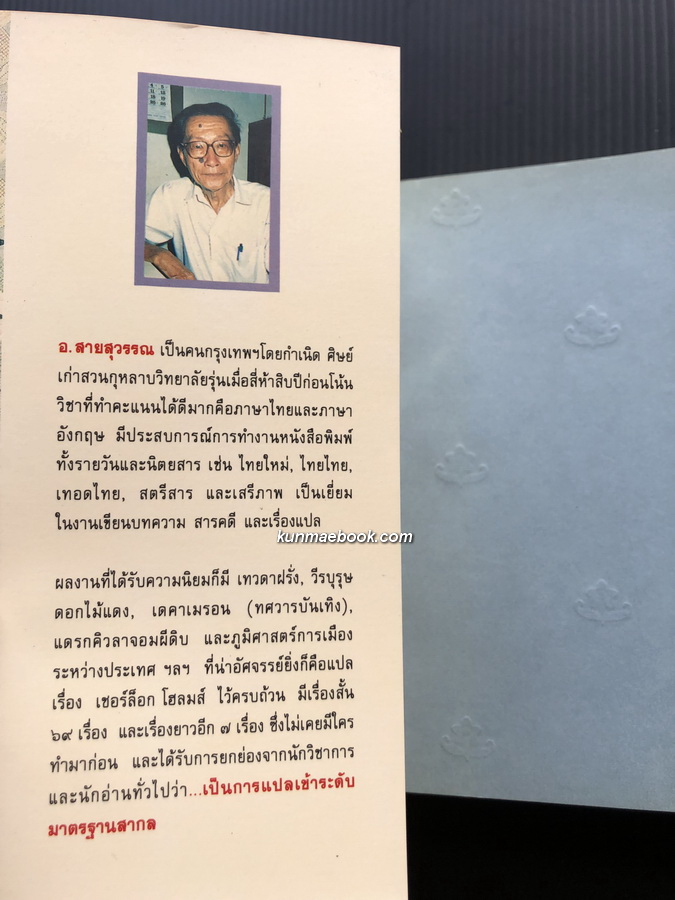 อ. สายสุวรรณ เป็นคนกรุงเทพฯโดยกำเนิด ศิษย์
เก่าสวนกุหลาบวิทยาลัยรุ่นเมื่อสี่ห้าสิบปีก่อนโน้น
วิชาที่ทำคะแนนได้ดีมากคือภาษาไทยและภาษา
อังกฤษ มีประสบการณ์การทำงานหนังสือพิมพ์
ทั้งรายวันและนิตยสาร เช่น ไทยใหม่, ไทยไทย,
เทอดไทย, สตรีสาร และเสรีภาพ เป็นเยี่ยม
ในงานเขียนบทความ สารคดี และเรื่องแปล
kunmaebook.com
ผลงานที่ได้รับความนิยมก็มี เทวดาฝรั่ง, วีรบุรุษ
ดอกไม้แดง, เดคาเมรอน (ทศวารบันเทิง),
แดรกคิวลาจอมผีดิบ และภูมิศาสตร์การเมือง
ระหว่างประเทศ ฯลฯ ที่น่าอัศจรรย์ยิ่งก็คือแปล
เรื่อง เชอร์ล็อก โฮลมส์ ไว้ครบถ้วน มีเรื่องสั้น
๖๙ เรื่อง และเรื่องยาวอีก ๗ เรื่อง ซึ่งไม่เคยมีใคร
ทำมาก่อน และได้รับการยกย่องจากนักวิชาการ
และนักอ่านทั่วไปว่า...เป็นการแปลเข้าระดับ
มาตรฐานสากล